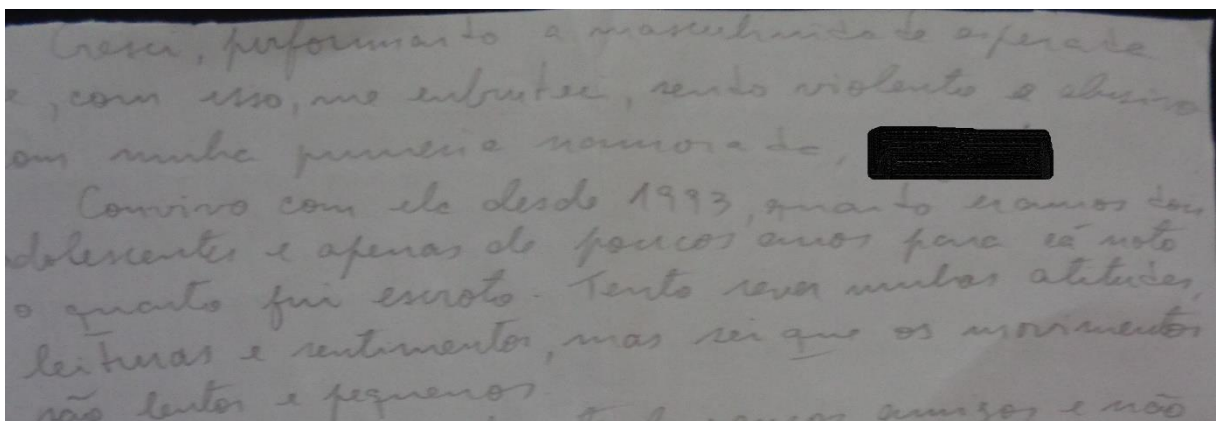 Cresci, performando a masculinidade esperada
e, com isso, me embrutec, sendo violento e abusivo
om minha primeira namorada,
Convivo com ela desde 1993, quando eramos dois
adolescentes e apenas de poucos anos para cá noto
o quanto fui escroto. Tento rever minhas atitudes,
leituras e sentimentos, mas sei que os movimentos
são lentos e pequenos.
amigos e não